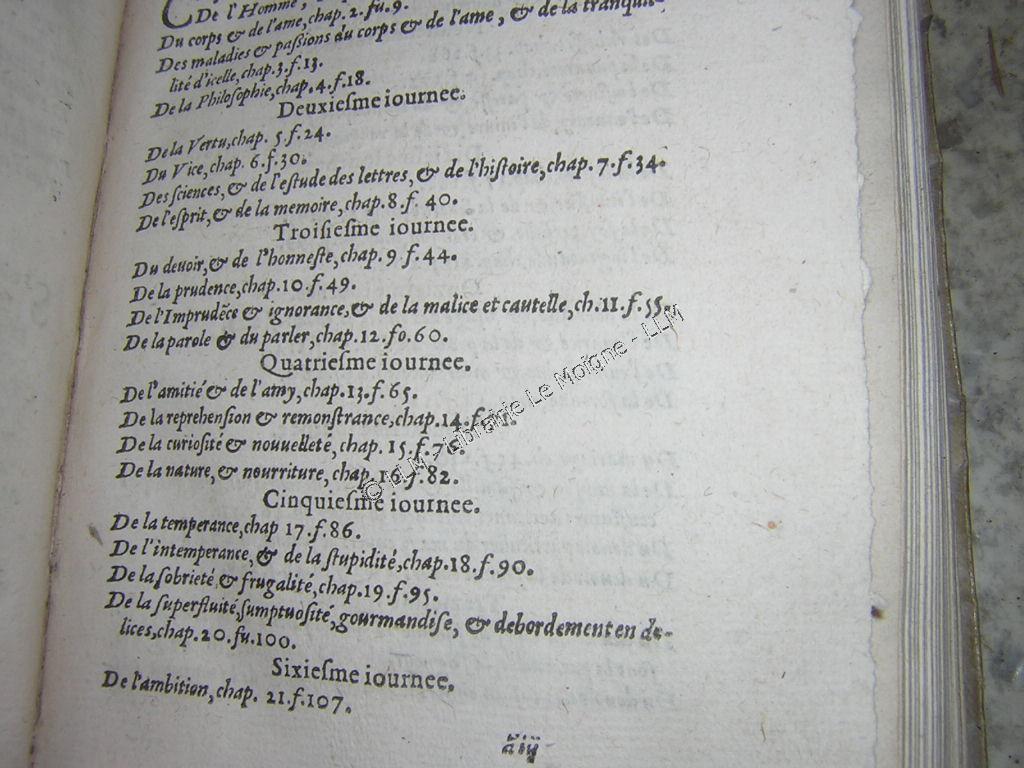 De l'Homme,
Du corps & de l'ame, chap. 2. fu. 9.
Des maladies & paſsions du corps & de l'ame, & de la tranquil-
lité d'icelle, chap. 3. f. 13.
De la Philoſophie, chap. 4. f. 18.
Deuxieſme iournee.
De la Vertu, chap. 5. f. 24.
Du Vice, chap. 6. f. 30.
Des ſciences, & de l'eſtude des lettres, & de l'hiſtoire, chap. 7. f. 34.
De l'eſprit, & de la memoire, chap. 8. f. 40.
Troiſieſme iournee.
Du devoir, & de l'honneſte, chap. 9 f. 44.
De la prudence, chap. 10. f. 49.
De l'Imprudẽce & ignorance, & de la malice et cautelle, ch. 11. f. 55.
De la parole & du parler, chap. 12. fo. 60.
Quatrieſme iournee.
De l'amitié & de l'amy, chap. 13. f. 65.
De la reprehenſion & remonſtrance, chap. 14. f.
De la curioſité & nouuelleté, chap. 15. f. 76.
De la nature, & nourriture, chap. 16. f. 82.
Cinquieſme iournee.
De la temperance, chap 17. f. 86.
De l'intemperance, & de la ſtupidité, chap. 18. f. 90.
De la ſobrieté & frugalité, chap. 19. f. 95.
De la ſuperfluité, ſumptuoſité, gourmandiſe, & debordement en de-
lices, chap. 20. fu. 100.
Sixieſme iournee.
De l'ambition, chap. 21. f. 107.
ãiij
© LLM - Librairie Le Moigne - LLM